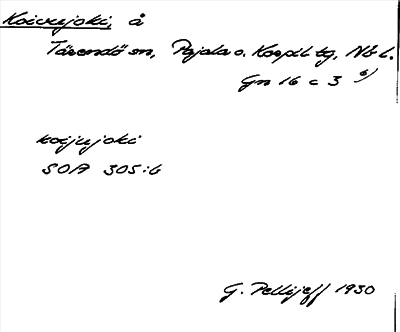 Koivujoki, å
Tärendö sn, Pajala o. Korpil. tg, Nb l.
Gn 16 c 3 6)
koijujoki
SOA 305:6
G. Pellijeff 1930